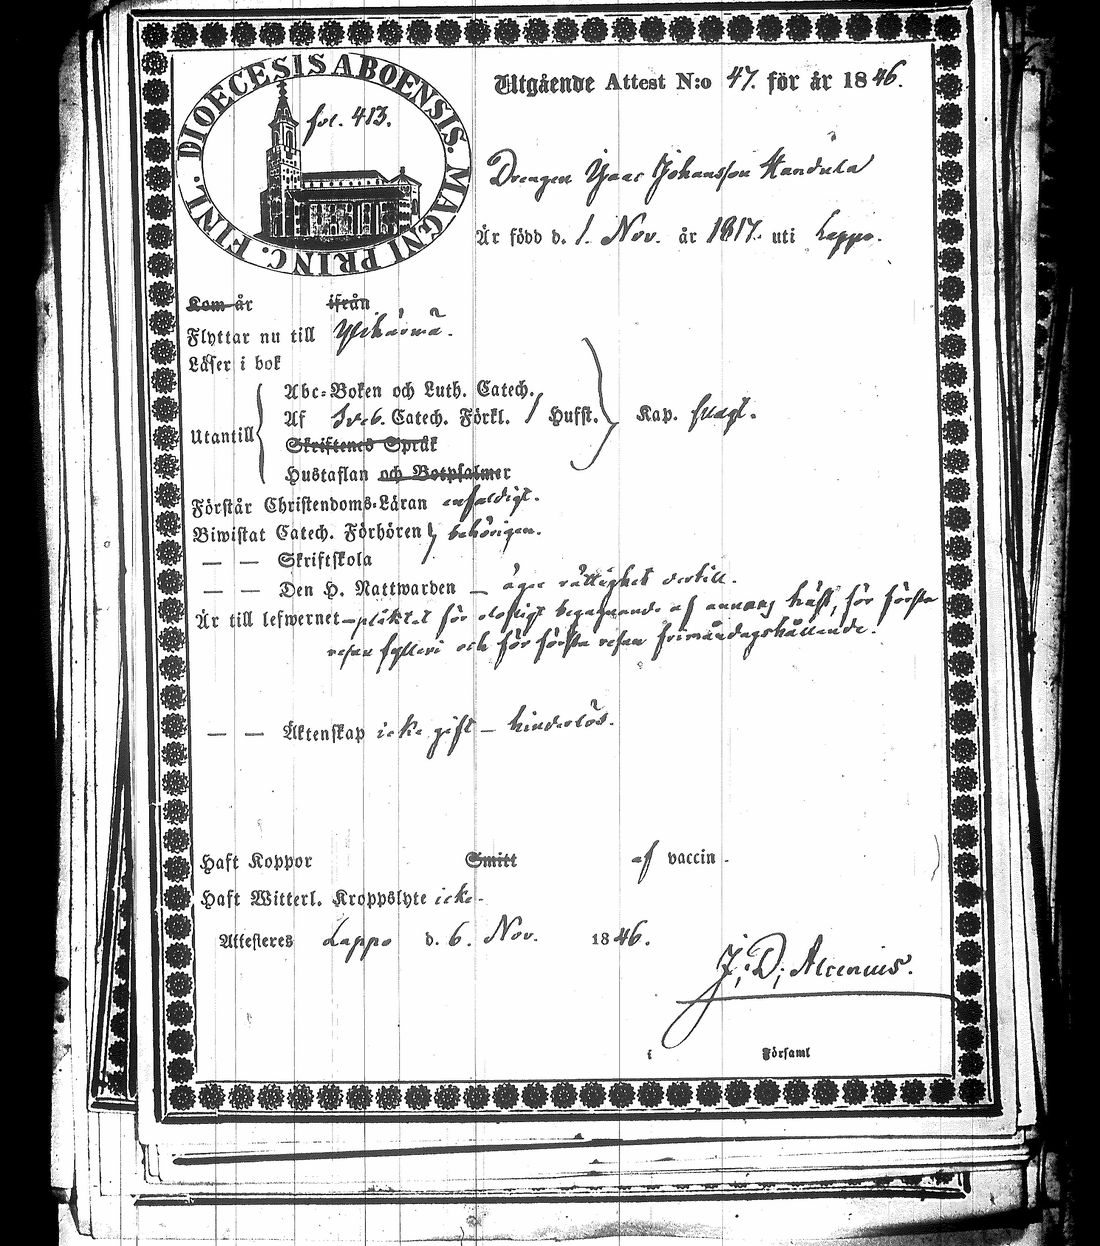 DIOECESIS ABOENSIS. MAGNI PRINC. FINL.
fol. 413.
Utgående Attest N:o 47. för år 1846.
Drengen Isaac Johansson Handula
Är född d. 1. Nov. år 1817. uti Lappo.
Kom år ifrån
Flyttar nu till Ylihärmä.
Läser i bok
Utantill
Abc-Boken och Luth. Catech.
Af Sveb. Catech. Förkl. / Husst. Kap. svagt.
Skriftenes Språk
Hustaflan och Botpsalmer
Förstår Christendoms-Läran enfaldigt.
Biwistat Catech. Förhören behörigen.
— — Skriftskola
— — Den H. Nattwarden — äger rättighet dertill.
Är till lefwernet pliktat för olofligt begagnande af annans häst, för första
resan fylleri och för första resan frimåndagshållande.
— — Äktenskap icke gift — hinderlös.
Haft Koppor Smitt af vaccin.
Haft Witterl. Kroppslyte icke.
Attesteres Lappo d. 6. Nov. 1846.
J; D; Alcenius.
i Församl